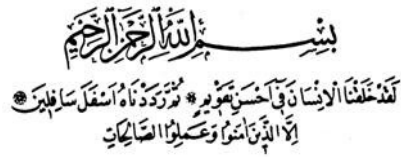 بِسْمِ اللهِ الرَّحْمٰنِ الرَّحِيمِ
لَقَدْ خَلَقْنَا الْاِنْسَانَ فٖٓى اَحْسَنِ تَقْوٖيمٍ * ثُمَّ رَدَدْنَاهُ اَسْفَلَ سَافِلٖينَ *
اِلَّا الَّذٖينَ اٰمَنُوا وَ عَمِلُوا الصَّالِحَاتِ